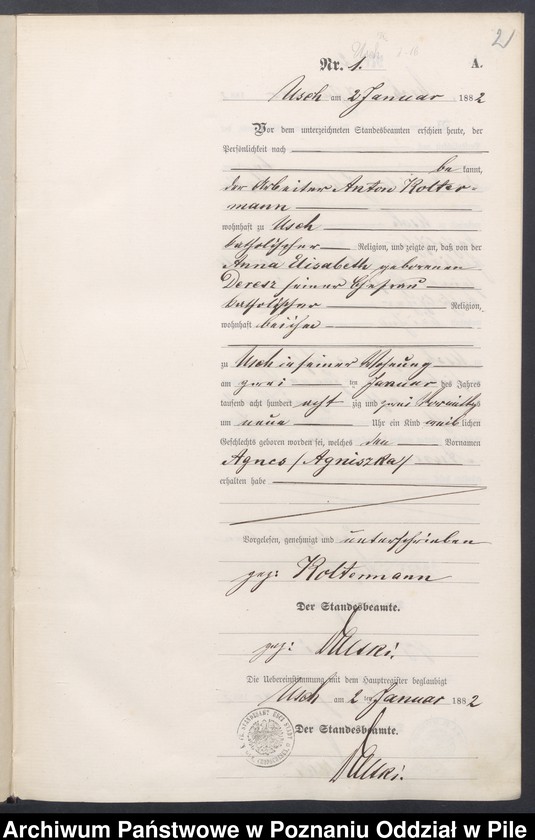 2
Nr. 1.
A.
Usch am 2 Januar 1882
Vor dem unterzeichneten Standesbeamten erschien heute, der
Persönlichkeit nach
be kannt,
der Arbeiter Anton Kolter-
mann
wohnhaft zu Usch
katholischer Religion, und zeigte an, daß von der
Anna Elisabeth geborenen
Deresz seiner Ehefrau
katholischer Religion,
wohnhaft bei ihm
zu Usch in seiner Wohnung
am zwei ten Januar des Jahres
tausend acht hundert acht zig und zwei Vormittags
um neun Uhr ein Kind weib lichen
Geschlechts geboren worden sei, welches den Vornamen
Agnes (Agniszka)
erhalten habe
Vorgelesen, genehmigt und unterschrieben
gez: Koltermann
Der Standesbeamte.
gez:
Die Uebereinstimmung mit dem Hauptregister beglaubigt
Usch am 2 ten Januar 1882
Der Standesbeamte.
Archiwum Państwowe w Poznaniu Oddział w Pile